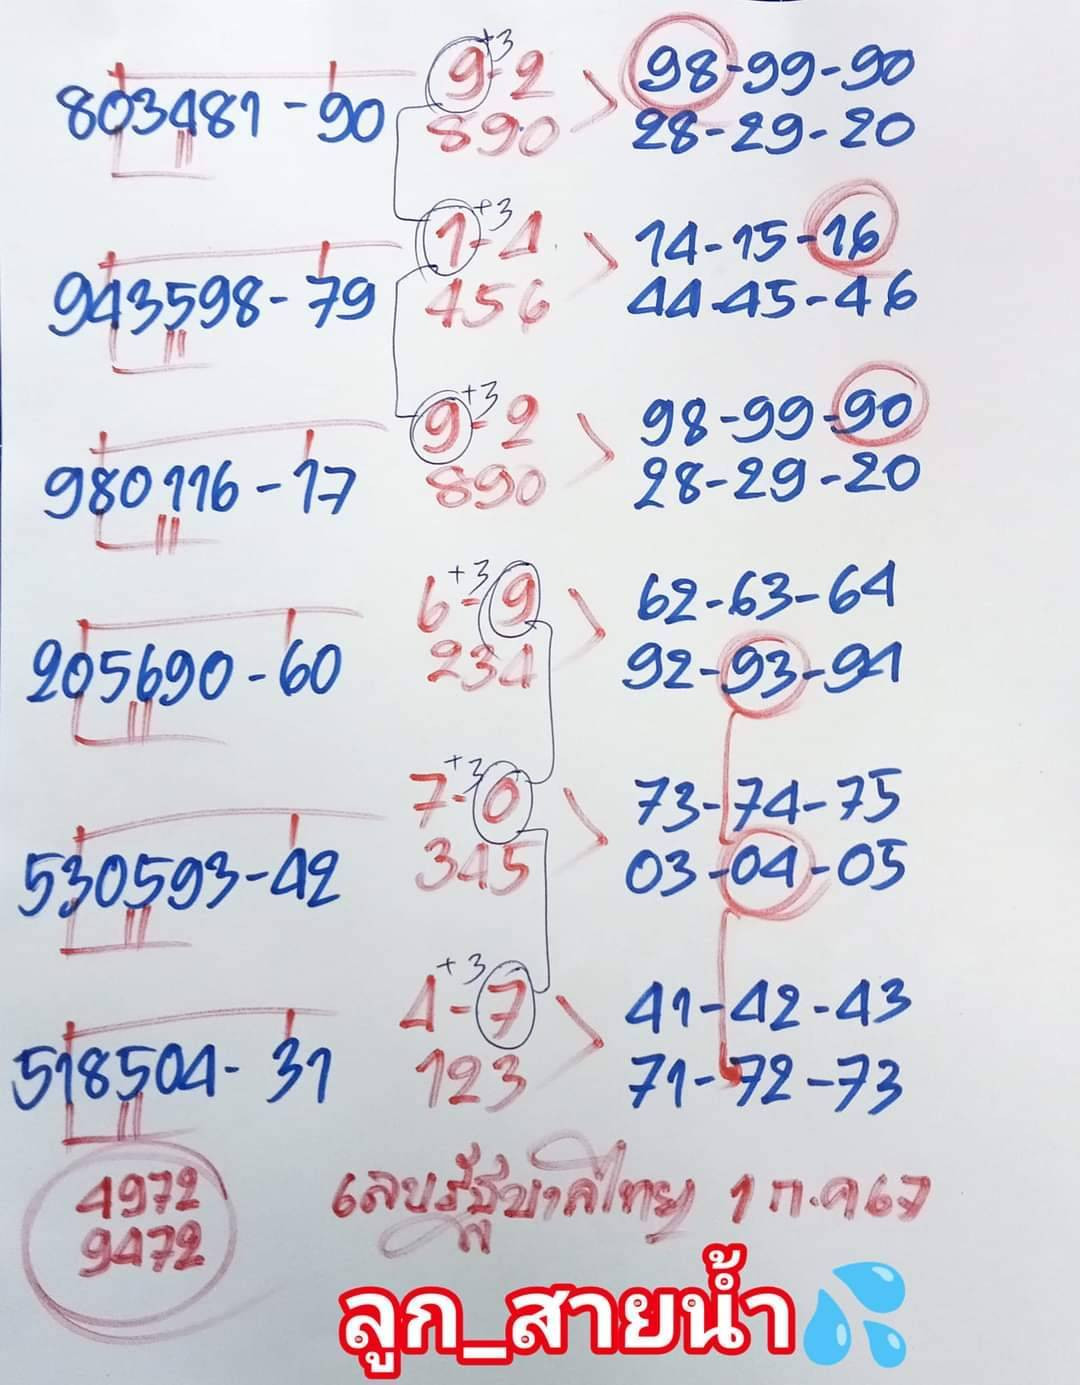 +3
9-2
98-99-90
803481-90
890
28-29-20
+3
1-4
14-15-16
943598-79
456
44-45-46
+3
9-2
98-99-90
980116-17
890
28-29-20
+3
6-9
62-63-64
205690-60
234
92-93-94
+3
7-0
73-74-75
530593-42
345
03-04-05
+3
4-7
41-42-43
518504-31
123
71-72-73
4972
9472
เลขรัฐบาลไทย 1 ก.ค 67
ลูก_สายน้ำ